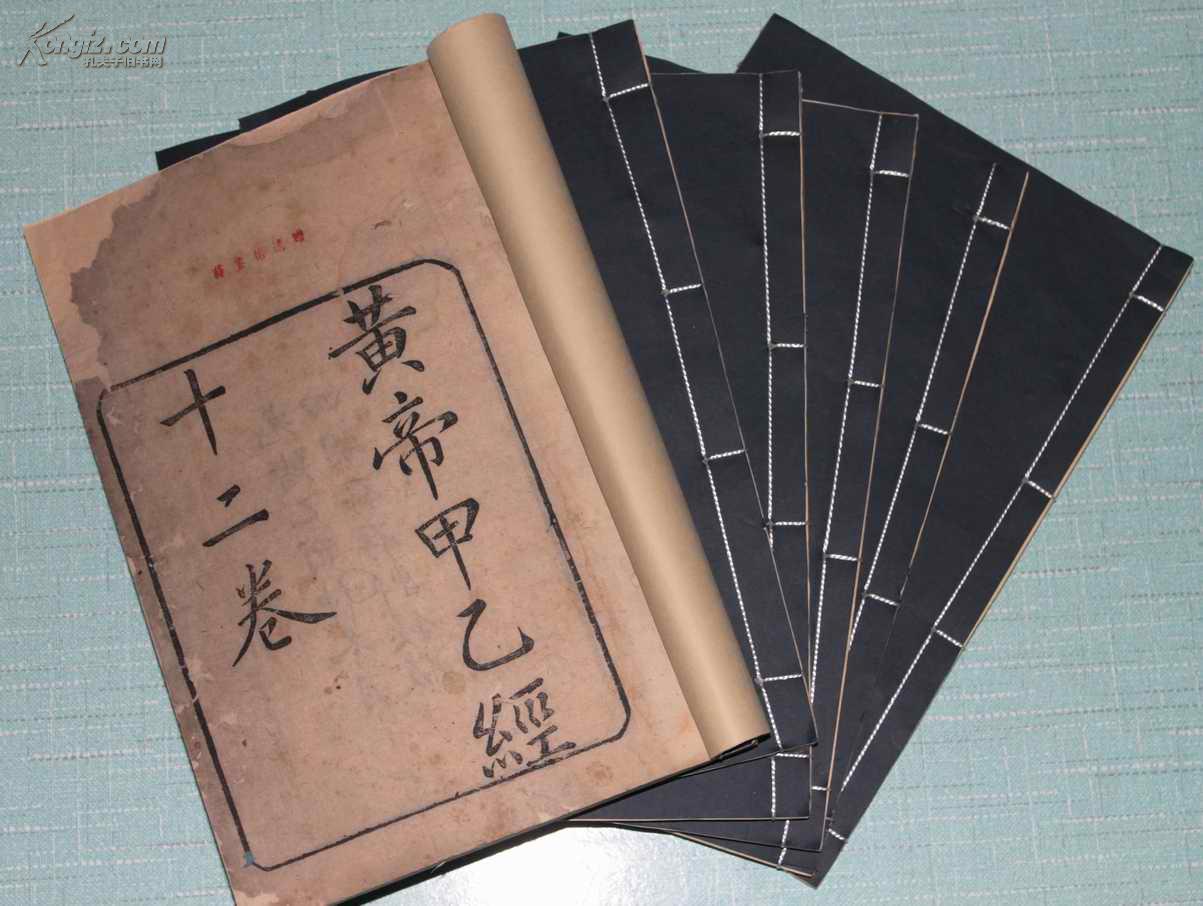 Kongfz.com
孔夫子旧书网
黃帝甲乙經
十二卷